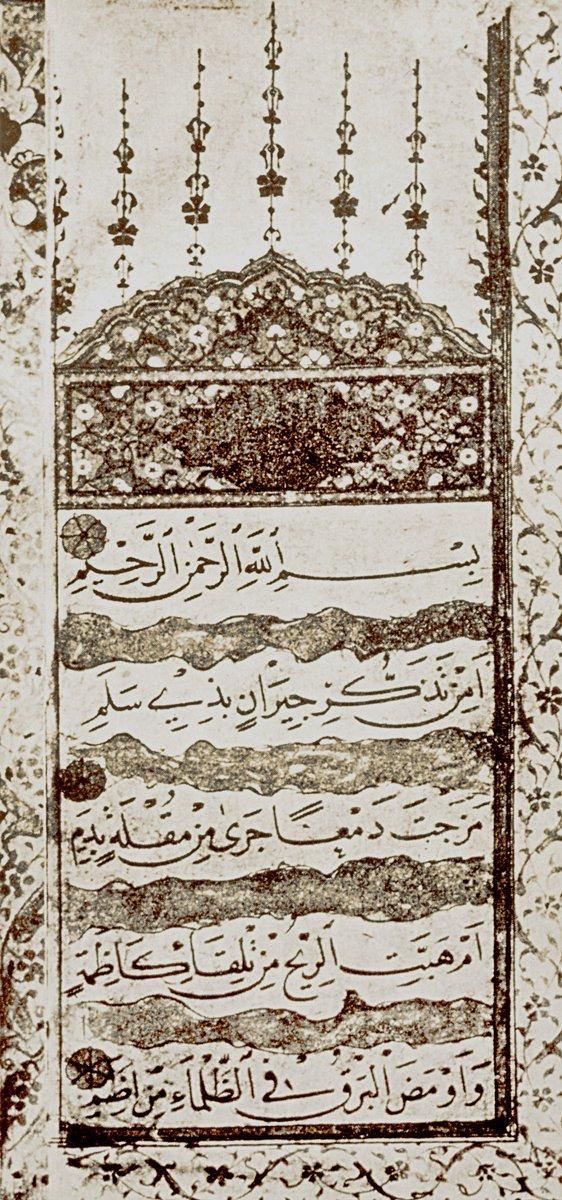 بِسْمِ اللَّهِ الرَّحْمَٰنِ الرَّحِيمِ
اَمِنْ تَذَكُّرِ جِيرَانٍ بِذِي سَلَمِ
مَزَجْتَ دَمْعًا جَرَىٰ مِنْ مُقْلَةٍ بِدَمِ
اَمْ هَبَّتِ الرِّيحُ مِنْ تِلْقَاءِ كَاظِمَةٍ
وَاَوْمَضَ الْبَرْقُ فِي الظَّلْمَاءِ مِنْ اِضَمِ